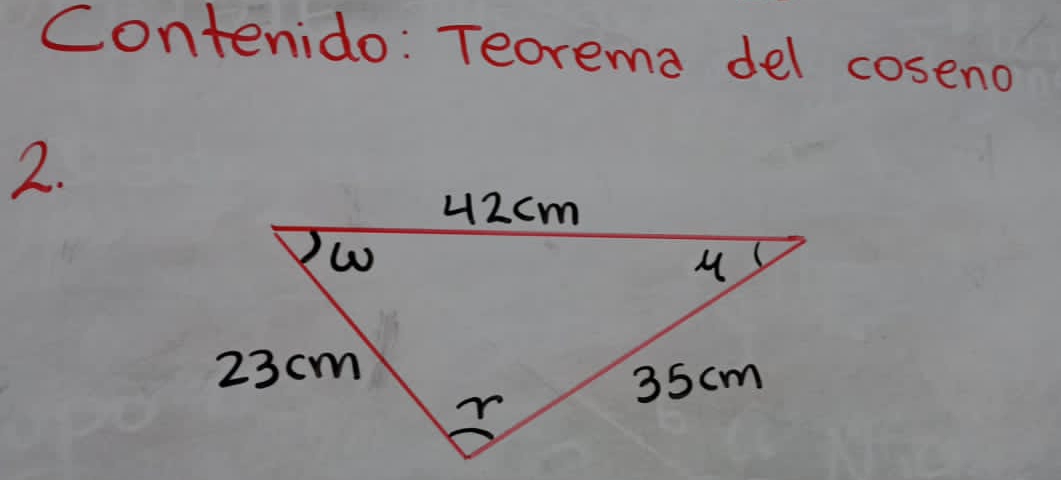 Contenido: Teorema del coseno
2.
42cm
ω
μ
23cm
35cm